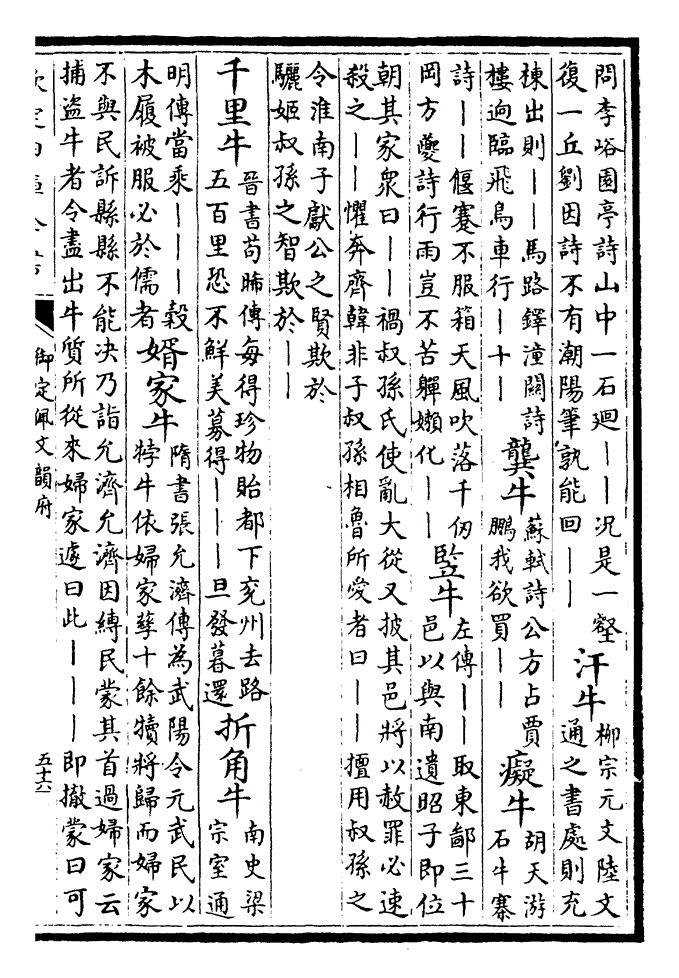 問李峪園亭詩山中一石廻｜｜况是一壑
復一丘劉因詩不有潮陽筆孰能回｜｜
汗牛
柳宗元文陸文
通之書處則充
棟出則｜｜馬路鐸潼關詩
樓逈臨飛鳥車行｜十｜
龔牛
蘇軾詩公方占賈
鵬我欲買｜｜
癡牛
胡天游
石牛寨
詩｜｜偃蹇不服箱天風吹落千仞
岡方夔詩行雨豈不苦觶嬾化｜｜
竪牛
左傳｜｜取東鄙三十
邑以與南遺昭子即位
朝其家衆曰｜｜禍叔孫氏使亂大從又披其邑將以赦罪必速
殺之｜｜懼奔齊韓非子叔孫相魯所愛者曰｜｜擅用叔孫之
令淮南子獻公之賢欺於
驪姬叔孫之智欺於｜｜
千里牛
晉書苟晞傳每得珍物貽都下兖州去路
五百里恐不鮮美募得｜｜｜旦發暮還
折角牛
南史梁
宗室通
明傳當乘｜｜｜縠
木履被服必於儒者
婿家牛
隋書張允濟傳為武陽令元武民以
牸牛依婦家孳十餘犢將歸而婦家
不與民訴縣縣不能决乃詣允濟允濟因縛民蒙其首過婦家云
捕盗牛者令盡出牛質所從來婦家遽曰此｜｜｜即撤蒙曰可
御定佩文韻府
五十六